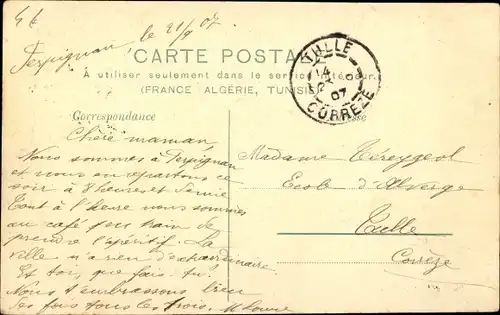 Perpignan le 21/9 07
CARTE POSTALE
A utiliser seulement dans le service intérieur.
(FRANCE ALGÉRIE, TUNISIE)
TULLE
07
CORREZE
Correspondance
Chère maman,
Nous sommes à Perpignan
et nous en repartons ce
soir à 8 heures et demie
Tout à l'heure nous sommes
au café en train de
prendre l'apéritif. La
ville n'a rien d'extraordinaire.
Et toi, que fais-tu.
Nous t'embrassons bien
des fois tous les trois.
Madame Téreygeol
Ecole d'Alverge
Tulle
Corrèze